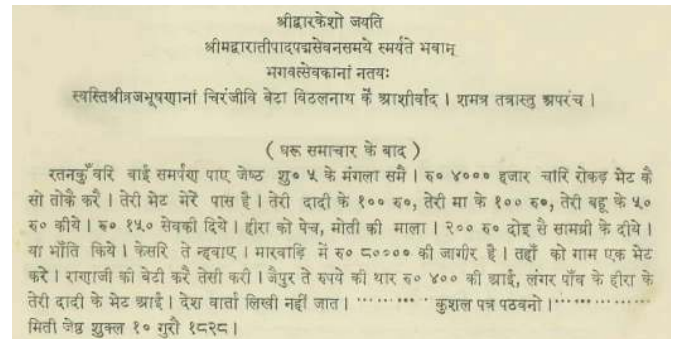 श्रीद्वारकेशो जयति
श्रीमद्वारातीपादपद्मसेवनसमये स्मर्यते भवान्
भगवत्सेवकानां नतयः
स्वस्तिश्रीव्रजभूषणानां चिरंजीवि बेटा विठलनाथ कैं आशीर्वाद । शमत्र तत्रास्तु अपरंच ।
( घरू समाचार के बाद )
रतनकुँवरि बाई समर्पण पाए जेष्ठ शु० ५ के मंगला समै । रु० ४००० हजार चारि रोकड़ भेट कै
सो तोकै करै । तेरी भेट मेरें पास है । तेरी दादी के १०० रु०, तेरी मा के १०० रु०, तेरी बहू के ५०
रु० कीये । रु० १५० सेवकी दिये । हीरा को पेच, मोती की माला । २०० रु० दोइ सै सामग्री के दीये ।
या भाँति किये । केसरि ते न्हवाए । मारवाड़ि में रु० ८०००० की जागीर है । तहाँ को गाम एक भेट
करे । राणाजी की बेटी करै तेसी करी । जैपुर ते रुपये की थार रु० ४०० की आई, लंगर पाँव के हीरा के
तेरी दादी के भेट आई । देश वार्ता लिखी नहीं जात । ········ कुशल पत्र पठवनो । ···············
मिती जेष्ठ शुक्ल १० गुरौ १८२८ ।